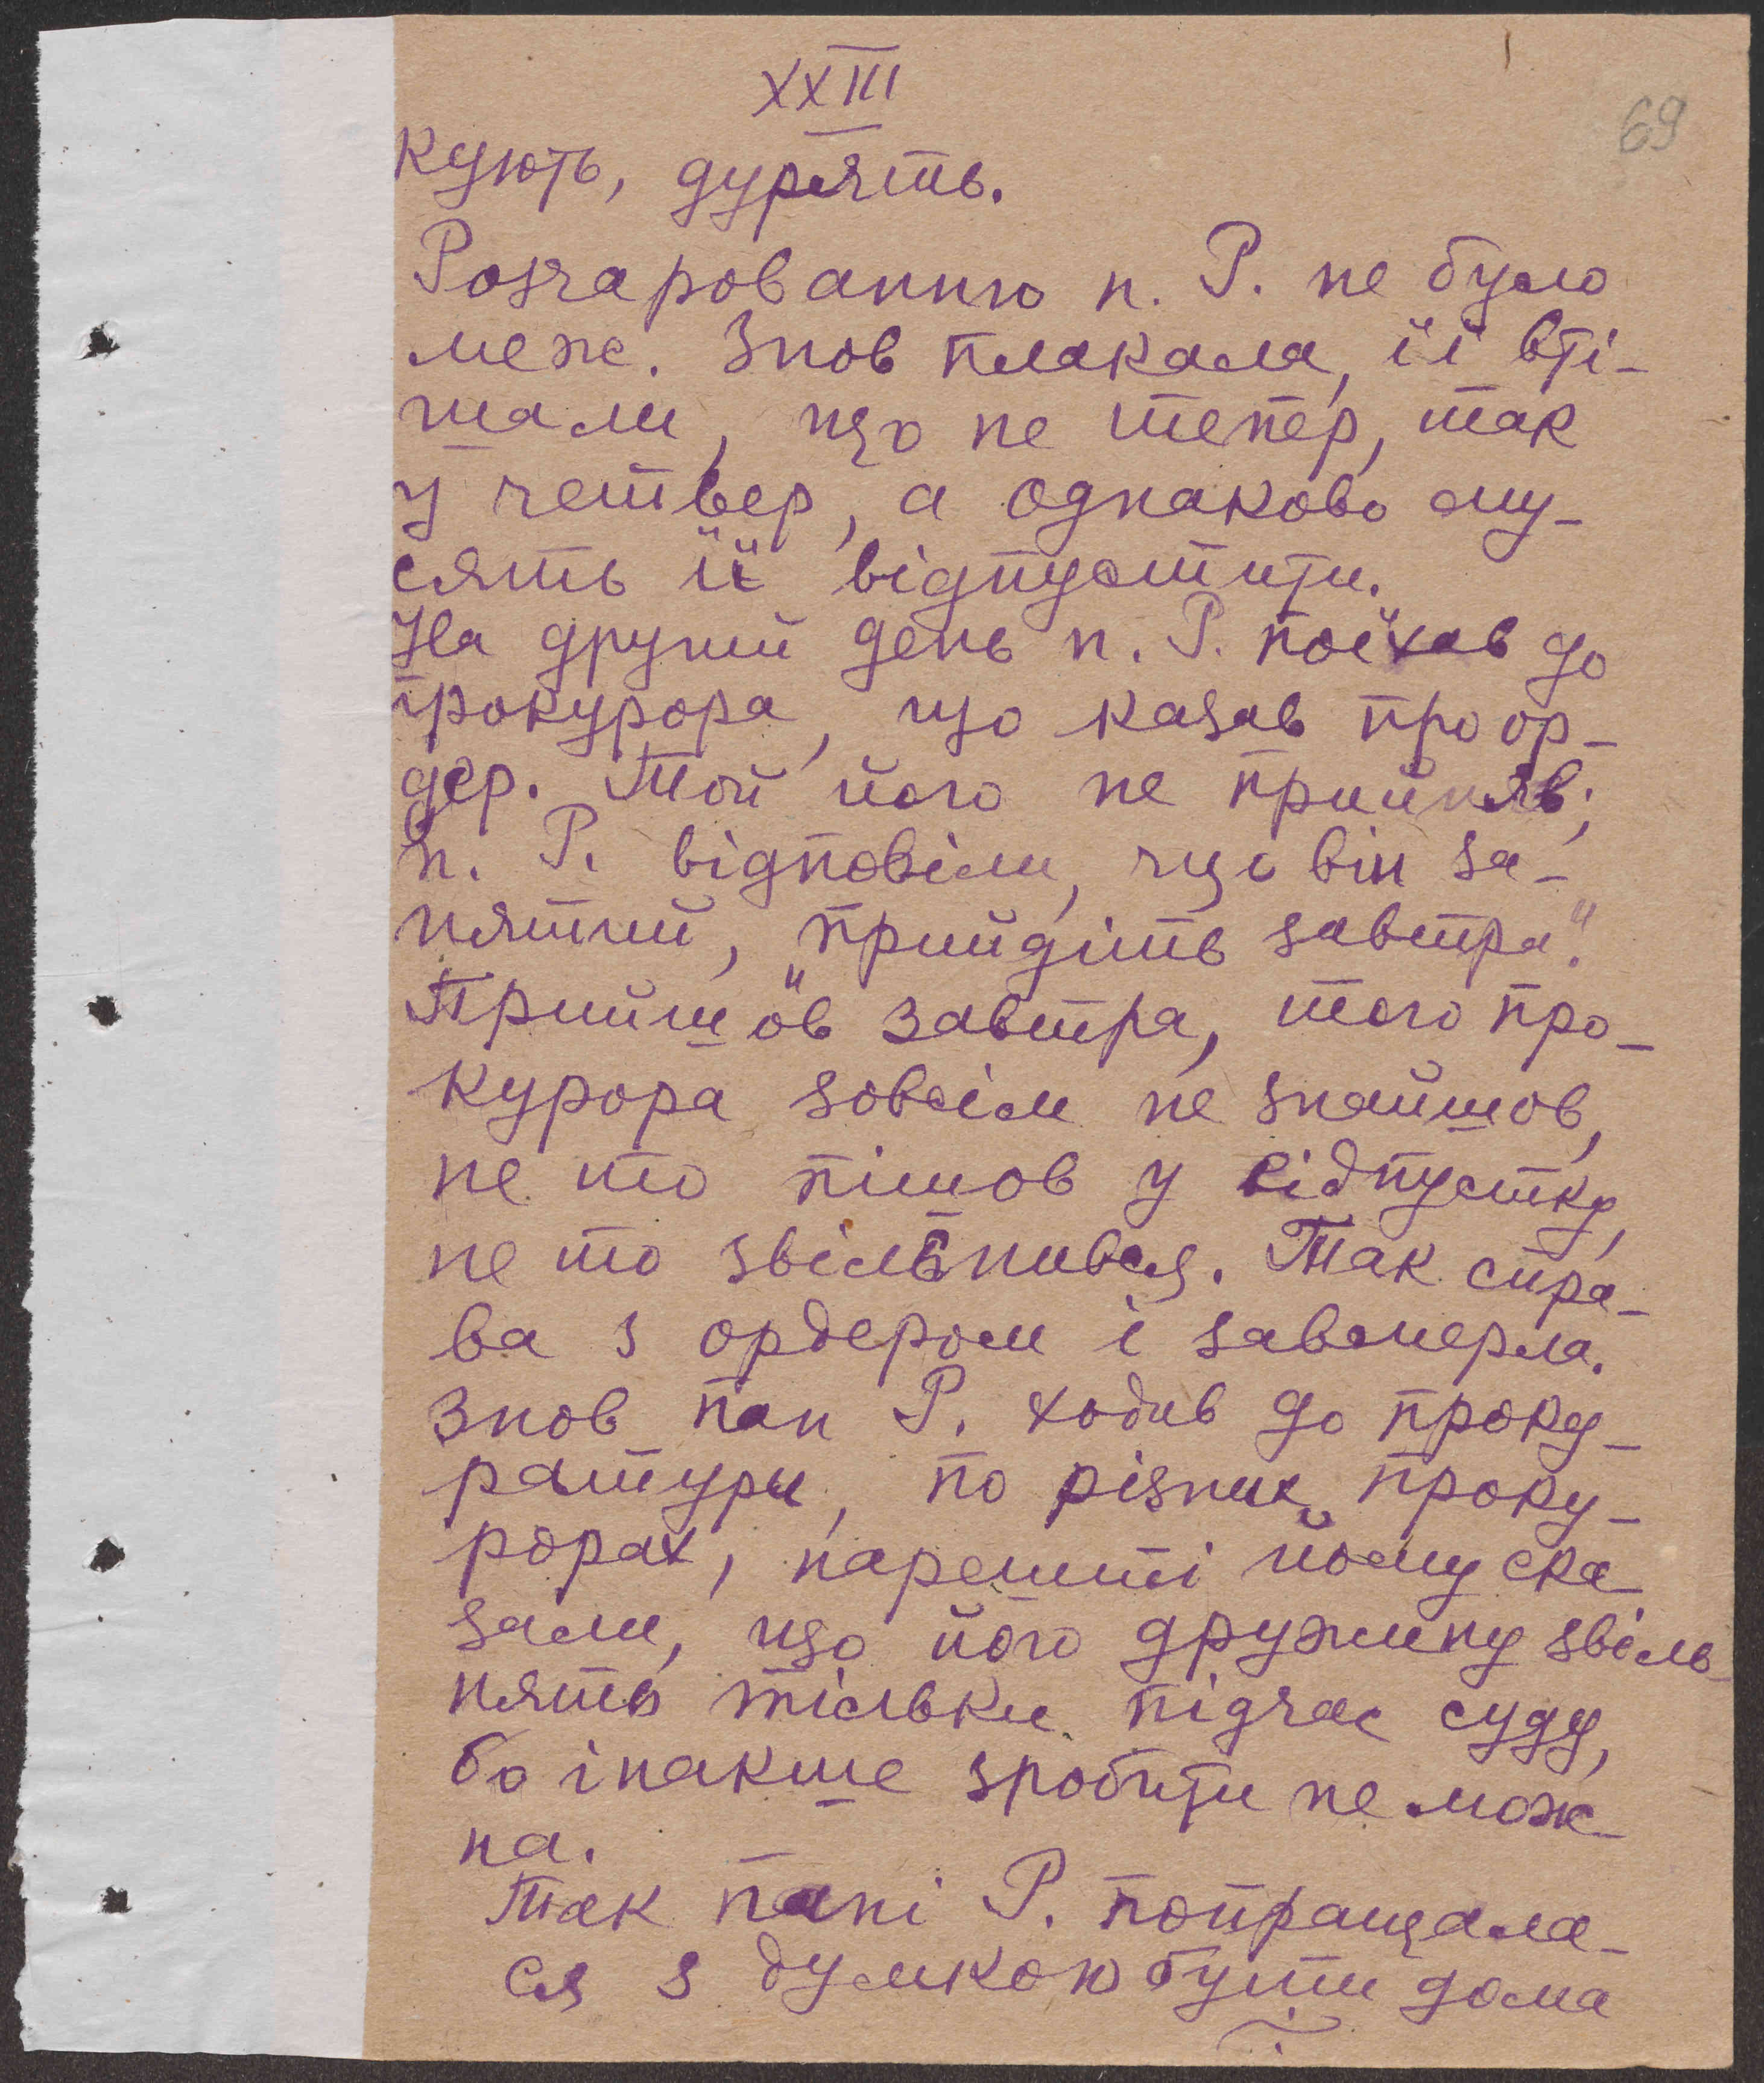 XXIII
69
кують, дурять.
Розчарованню п. Р. не було
меж. Знов плакала, її вті-
шали, що не тепер, так
у четвер, а однаково му-
сять її відпустити.
На другий день п. Р. поїхав до
прокурора, що казав про ор-
дер. Той його не прийняв;
п. Р. відповіли, що він за-
нятий, „прийдіть завтра".
Прийшов завтра, того про-
курора зовсім не знайшов,
не то пішов у відпустку,
не то звільнився. Так спра-
ва з ордером і завмерла.
Знов пан Р. ходив до проку-
ратури, по різних проку-
рорах, нарешті йому ска-
зали, що його дружину звіль-
нять тільки підчас суду,
бо інакше зробити не мож-
на.
Так пані Р. попращала-
ся з думкою бути дома